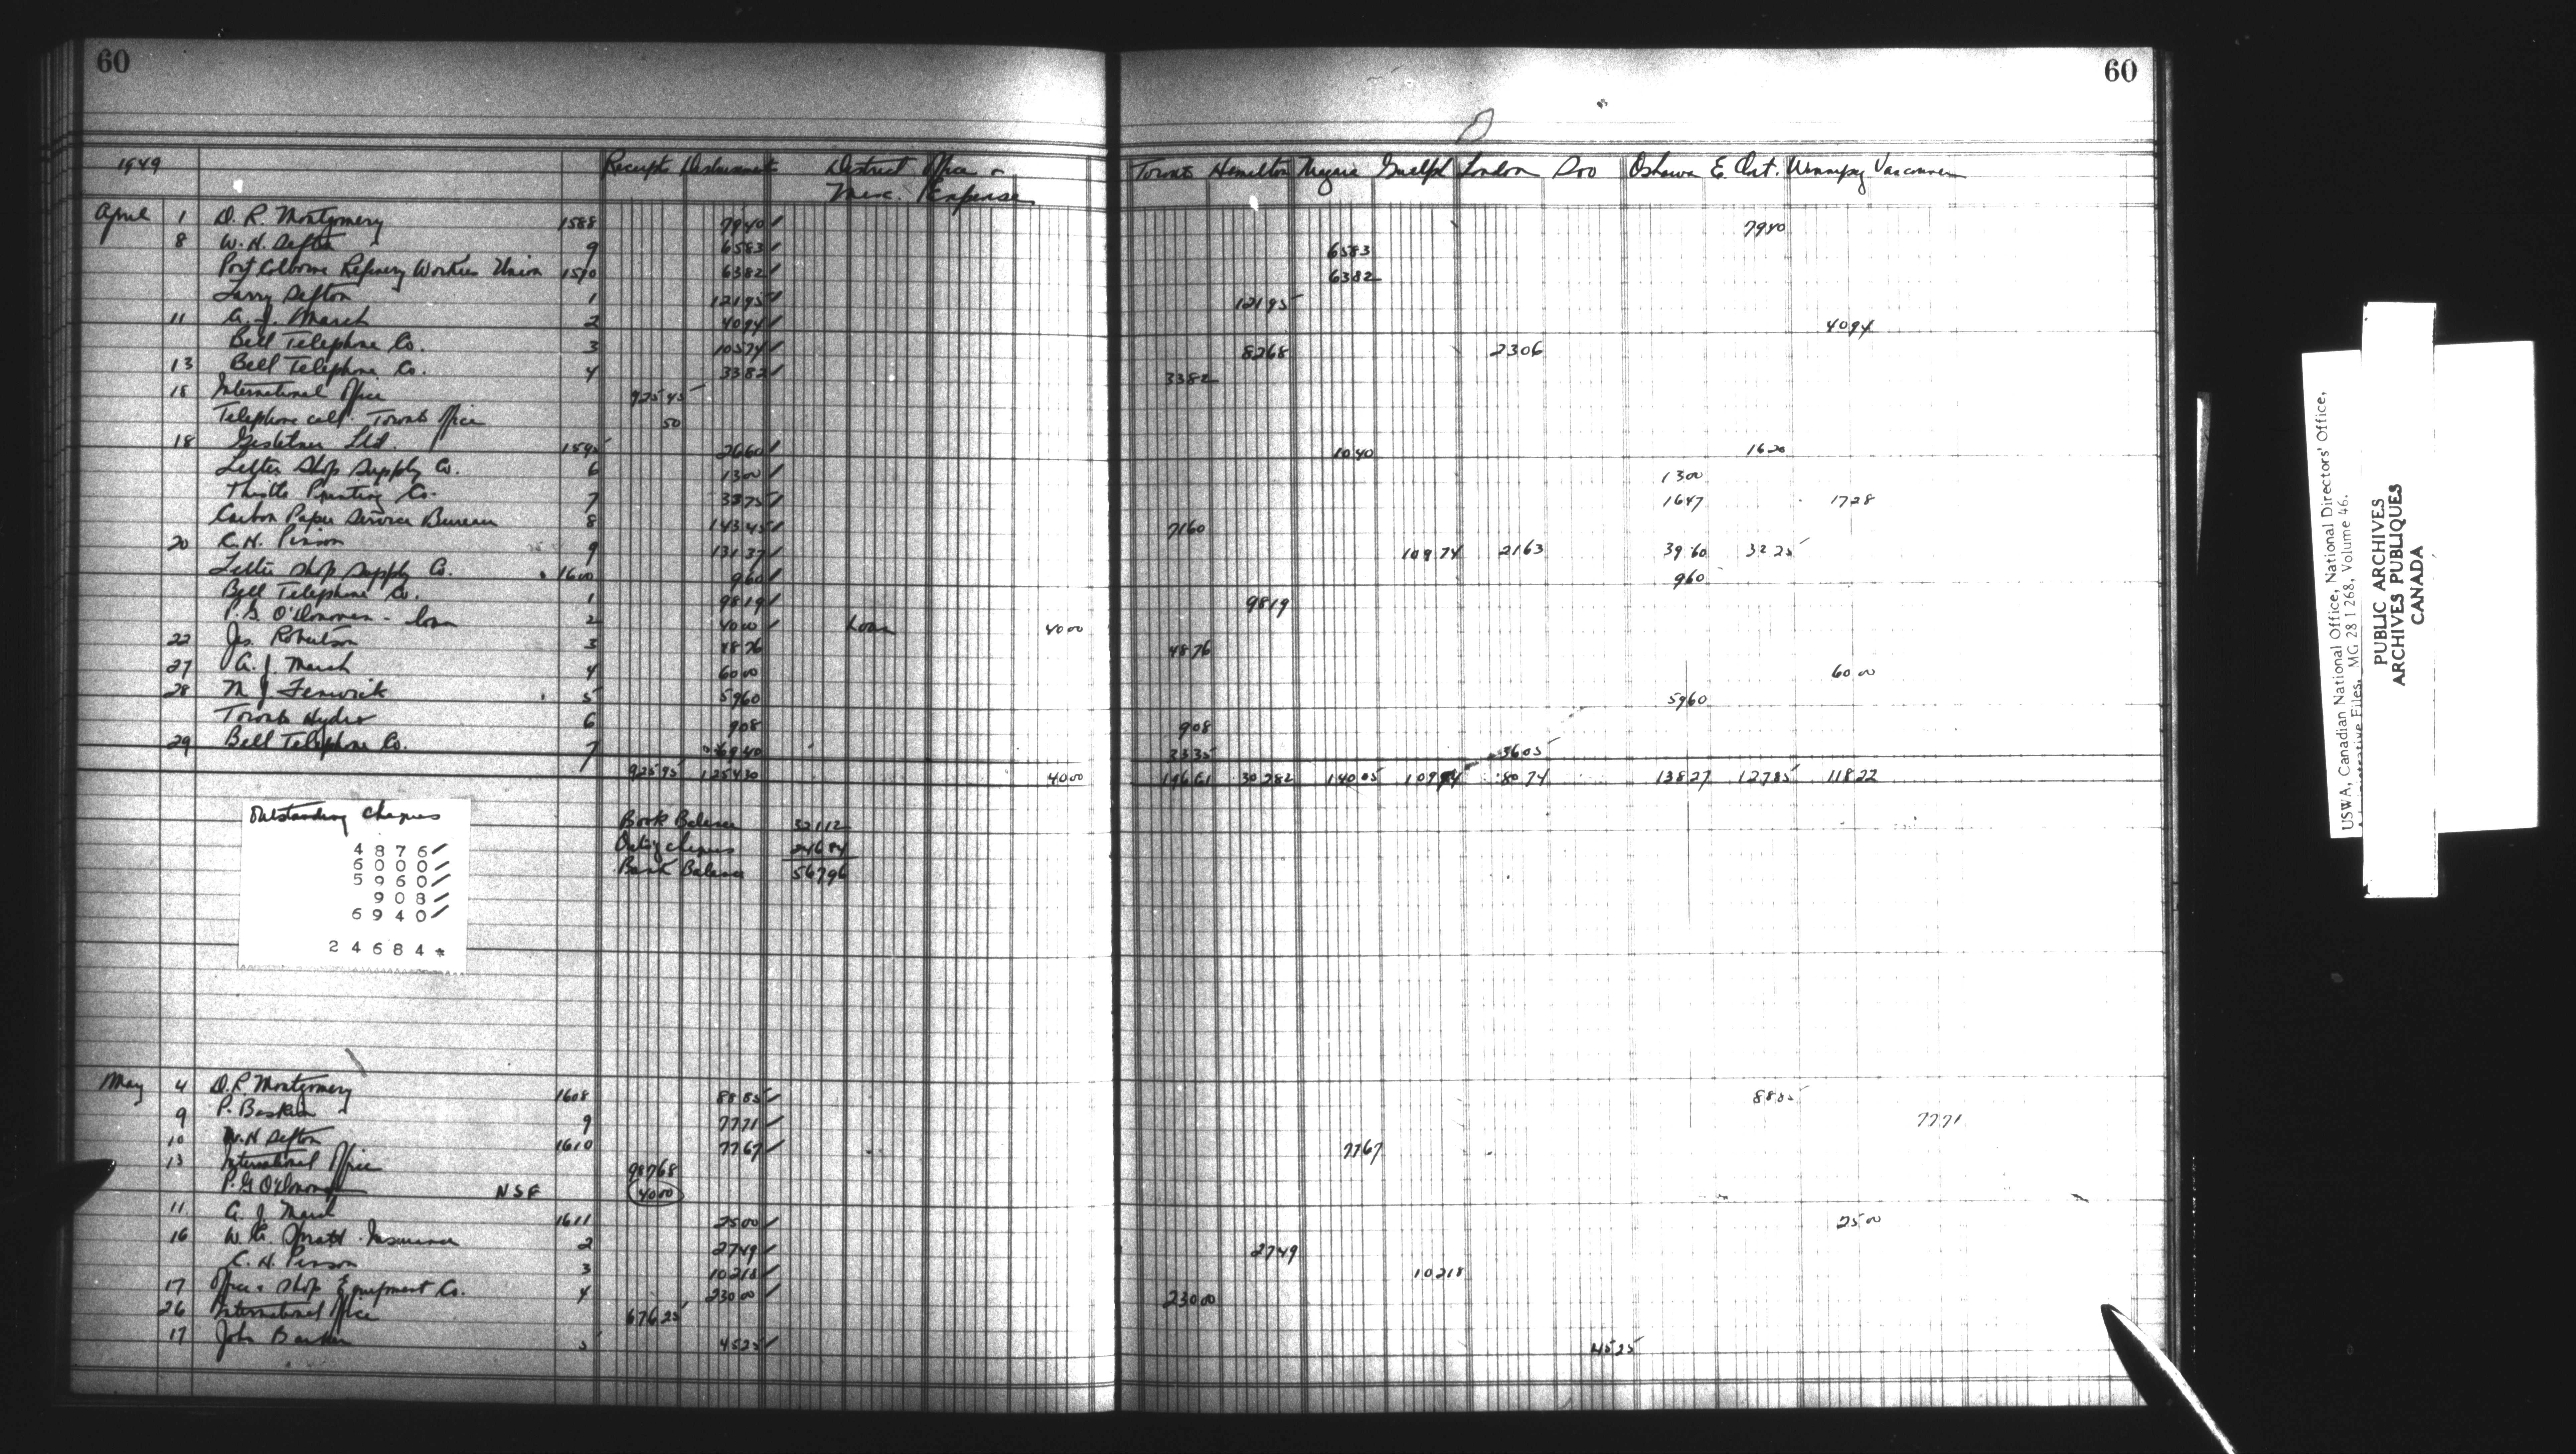 60
60
1949 Receipts Disbursements District Office & Toronto Hamilton Niagara Guelph London Soo Oshawa E. Ont. Winnipeg Vancouver
Misc. Expense
April 1 D. R. Montgomery 1588 7940 7940
8 W. H. Sefton 9 6583 6583
Port Colborne Refinery Workers Union 1590 6382 6382
Larry Sefton 1 12195 12195
11 A. J. March 2 4094 4094
Bell Telephone Co. 3 10574 8268 2306
13 Bell Telephone Co. 4 3382 3382
18 International Office 925 45
Telephone call Toronto Office 50
18 Gestetner Ltd. 1595 2660 1040 1620
Letter Shop Supply Co. 6 1300 1300
Thistle Printing Co. 7 3375 1647 1728
Carbon Paper Service Bureau 8 14345 7160
20 C. H. Pirson 9 13137 10974 2163 3960 3225
Letter Shop Supply Co. 1600 960 960
Bell Telephone Co. 1 9819 9819
P. G. O'Donovan - loan 2 4000 Loan 4000
22 Jas. Robertson 3 4876 4876
27 A. J. March 4 6000 6000
28 M J Fenwick 5 5960 5960
Toronto Hydro 6 908 908
29 Bell Telephone Co. 7 6940 3335 3605
92595 125430 4000 19661 30282 14005 10974 8074 13827 12785 11822
Outstanding Cheques
4876
6000
5960
908
6940
24684 *
Book Balance 32112
Outs'g cheques 24684
Bank Balance 56796
May 4 D. R Montgomery 1608 8885 8885
9 P. Baskin 9 7771 7771
10 W. H Sefton 1610 7767 7767
13 International Office 98768
P. G O'Donovan NSF 4000
11 A. J. March 1611 2500 2500
16 W. G. Insurance 2 2749 2749
C. H. Pirson 3 10218 10218
17 Office & Shop Equipment Co. 4 23000 23000
26 International Office 67625
17 John Barker 5 4525 4525
USWA, Canadian National Office, National Directors' Office,
Administrative Files, MG 28 I 268, Volume 46.
PUBLIC ARCHIVES
ARCHIVES PUBLIQUES
CANADA